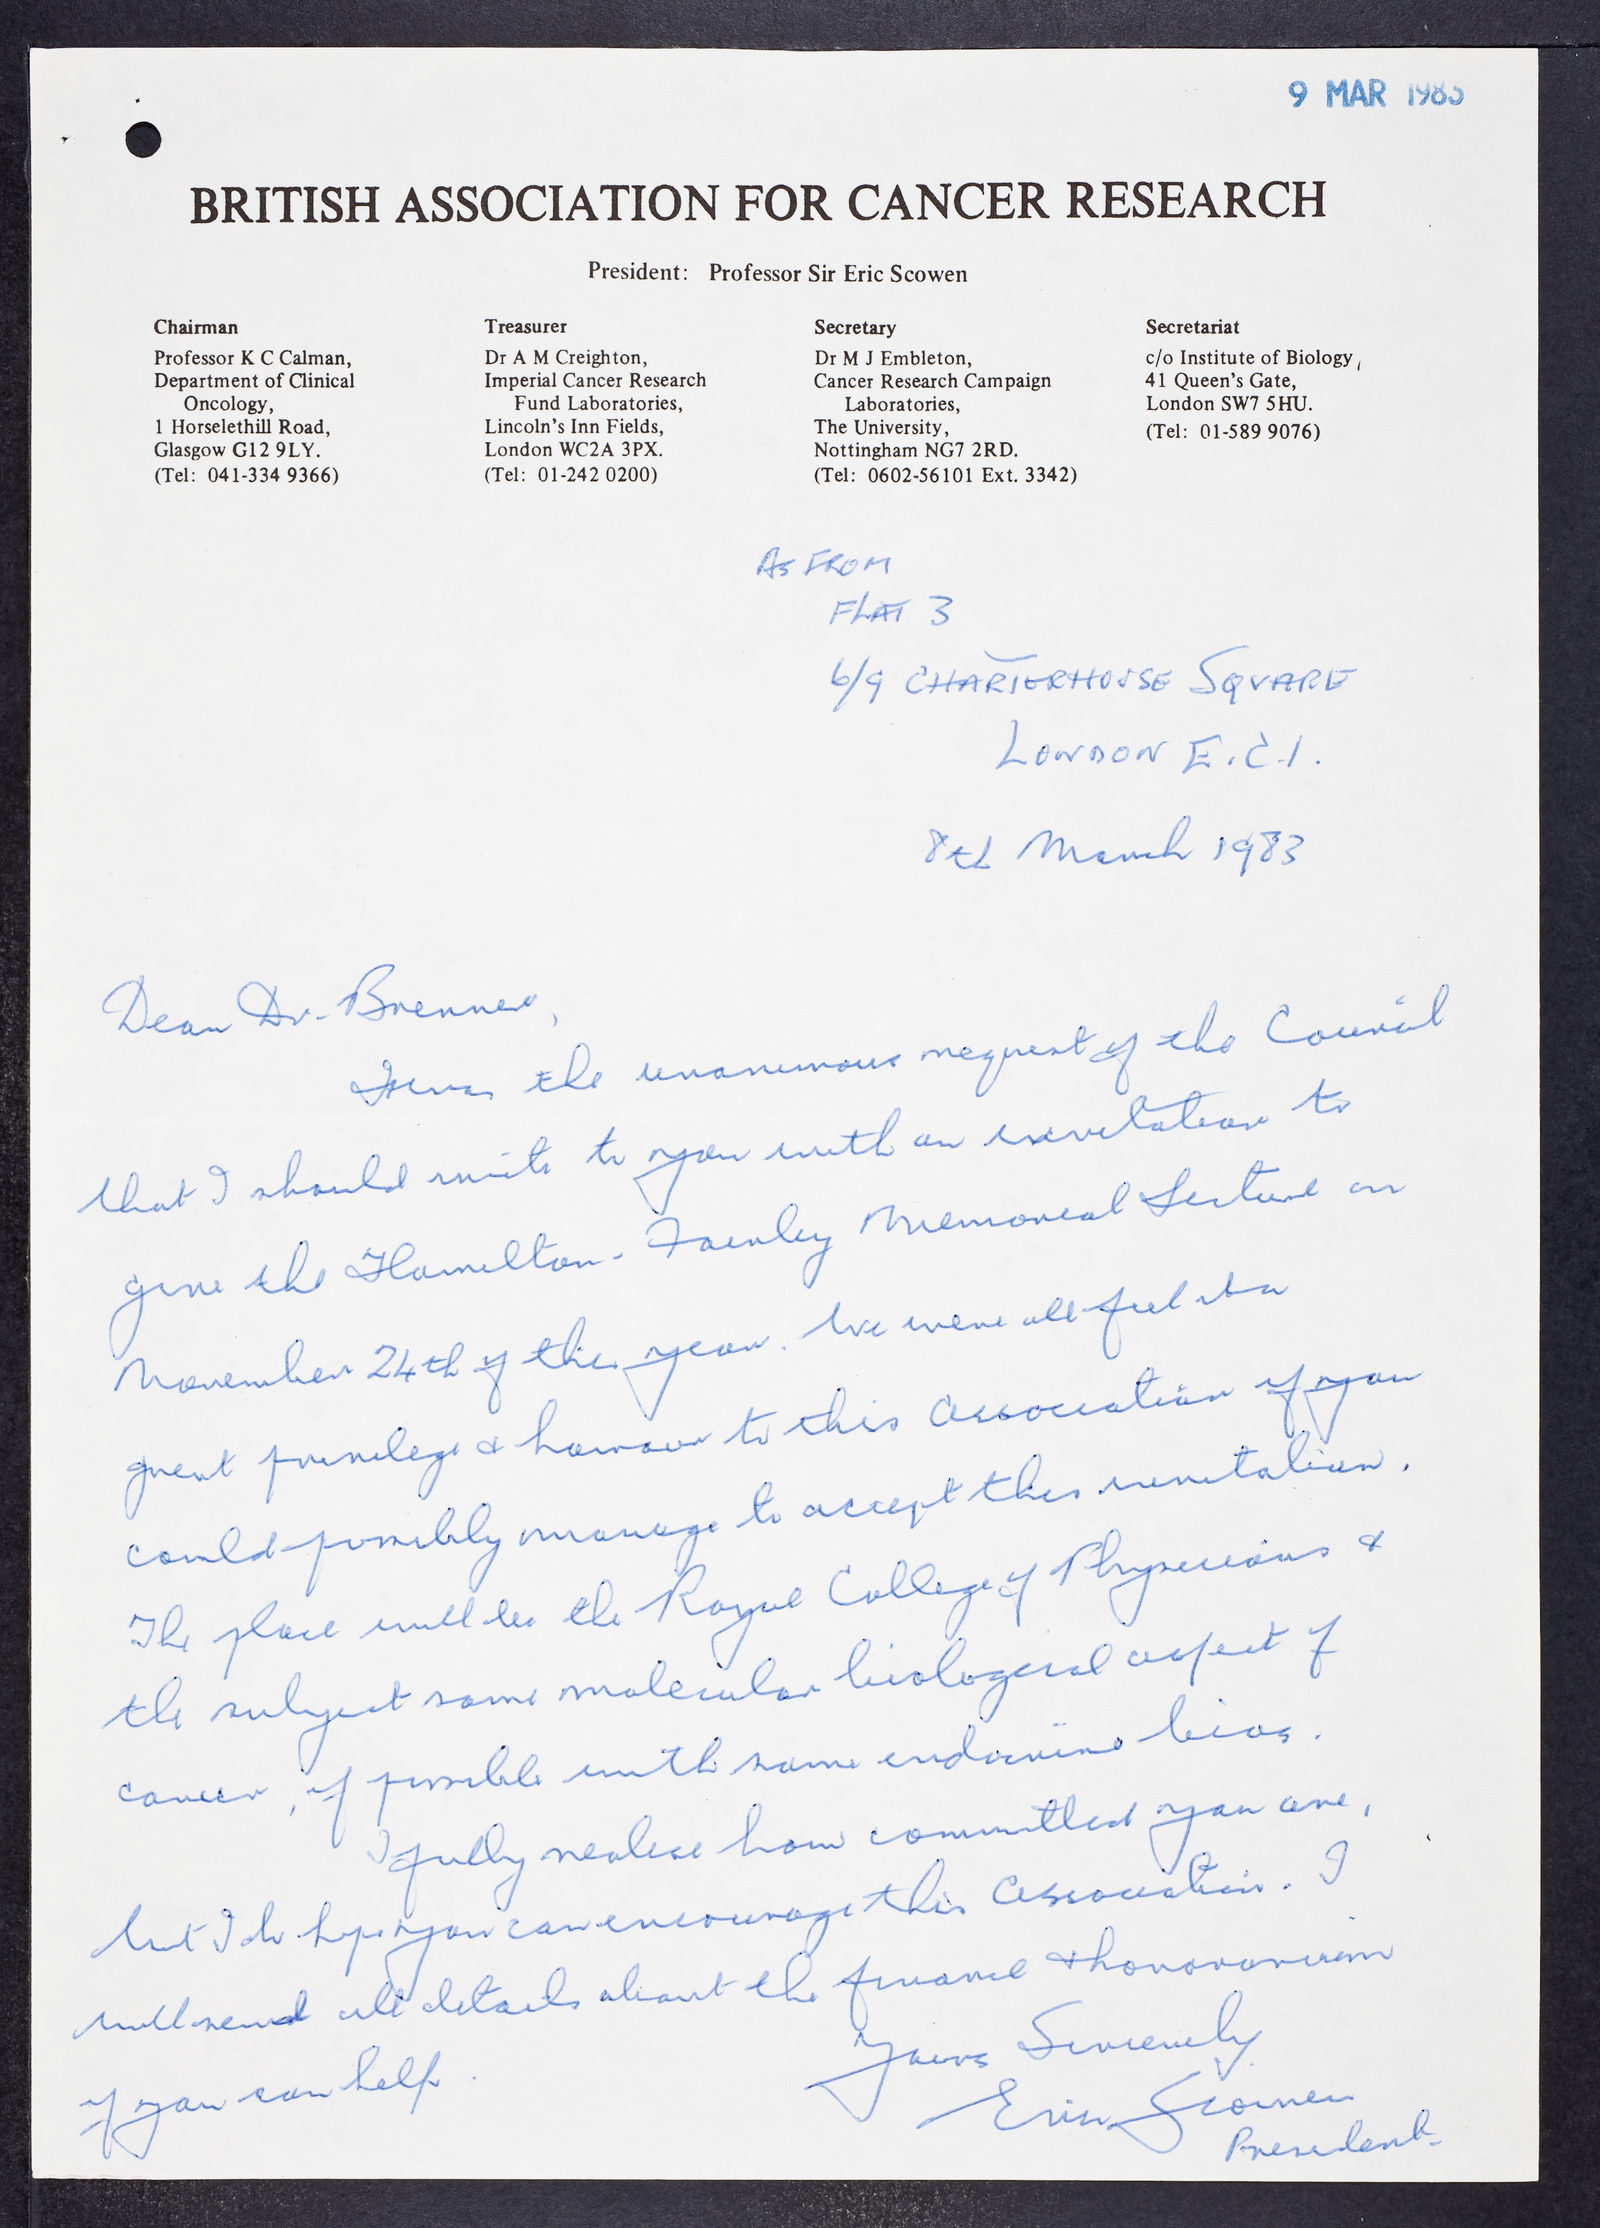 9 MAR 1983
BRITISH ASSOCIATION FOR CANCER RESEARCH
President: Professor Sir Eric Scowen
Chairman
Professor K C Calman,
Department of Clinical
Oncology,
1 Horselethill Road,
Glasgow G12 9LY.
(Tel: 041-334 9366)
Treasurer
Dr A M Creighton,
Imperial Cancer Research
Fund Laboratories,
Lincoln's Inn Fields,
London WC2A 3PX.
(Tel: 01-242 0200)
Secretary
Dr M J Embleton,
Cancer Research Campaign
Laboratories,
The University,
Nottingham NG7 2RD.
(Tel: 0602-56101 Ext. 3342)
Secretariat
c/o Institute of Biology,
41 Queen's Gate,
London SW7 5HU.
(Tel: 01-589 9076)
AS FROM
FLAT 3
6/9 CHARTERHOUSE SQUARE
LONDON E.C.1.
8th March 1983
Dear Dr. Brenner,
It was the unanimous request of the Council
that I should write to you with an invitation to
give the Hamilton-Fairley Memorial Lecture on
November 24th of this year. We were all feel it a
great privilege & honour to this Association if you
could possibly manage to accept this invitation.
The place will be the Royal College of Physicians &
the subject some molecular biological aspect of
cancer, if possible with some endocrine bias.
I fully realise how committed you are,
but I do hope you can encourage this Association. I
will send all details about the finance & honorarium
if you can help.
Yours Sincerely
Eric Scowen
President.